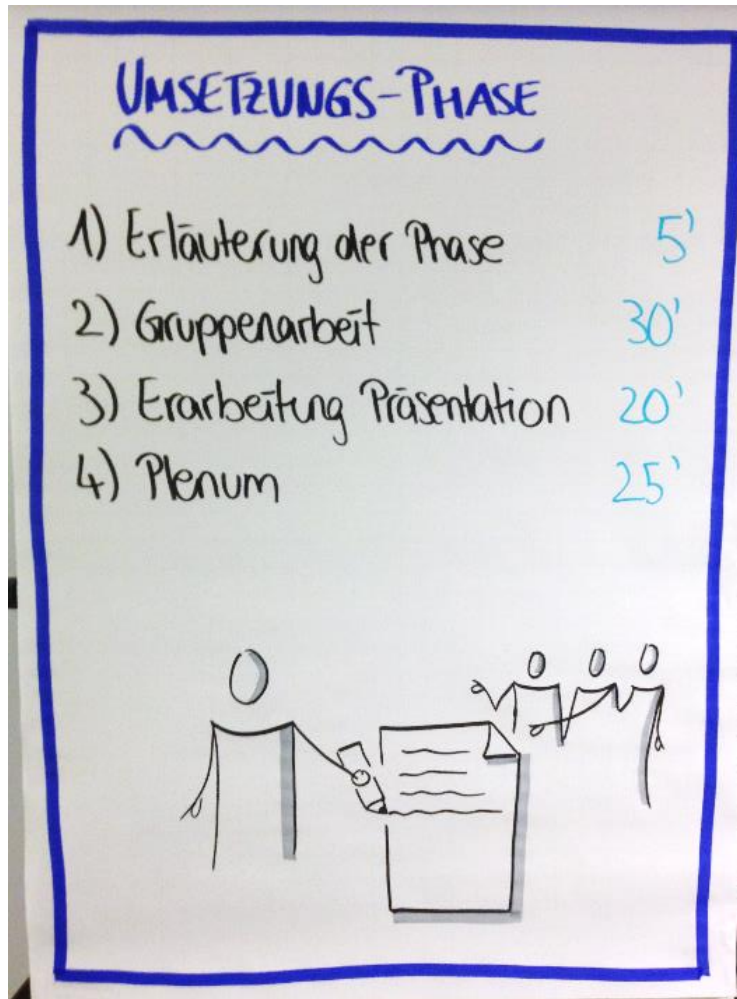 UMSETZUNGS-PHASE
1) Erläuterung der Phase 5'
2) Gruppenarbeit 30'
3) Erarbeitung Präsentation 20'
4) Plenum 25'